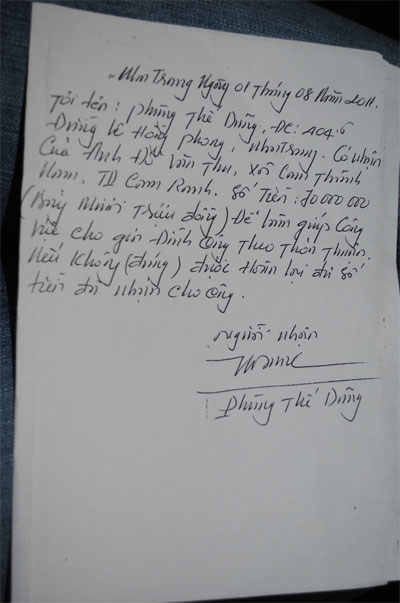 Nha Trang Ngày 01 Tháng 08 Năm 2011.
Tôi tên: Phùng Thế Dũng, ĐC: 404.
Đường Lê Hồng Phong, Nha Trang. Có nhận
Của Anh Đỗ Văn Thu, Xã Cam Thành
Nam, TX Cam Ranh. Số Tiền: 70.000.000
(Bảy Mươi Triệu đồng) Để Làm giúp Công
việc cho gia Đình Ông Theo Thỏa Thuận.
Nếu Không (đúng) được Hoàn lại đủ số
tiền đã nhận cho ông.
Người nhận
Phùng Thế Dũng